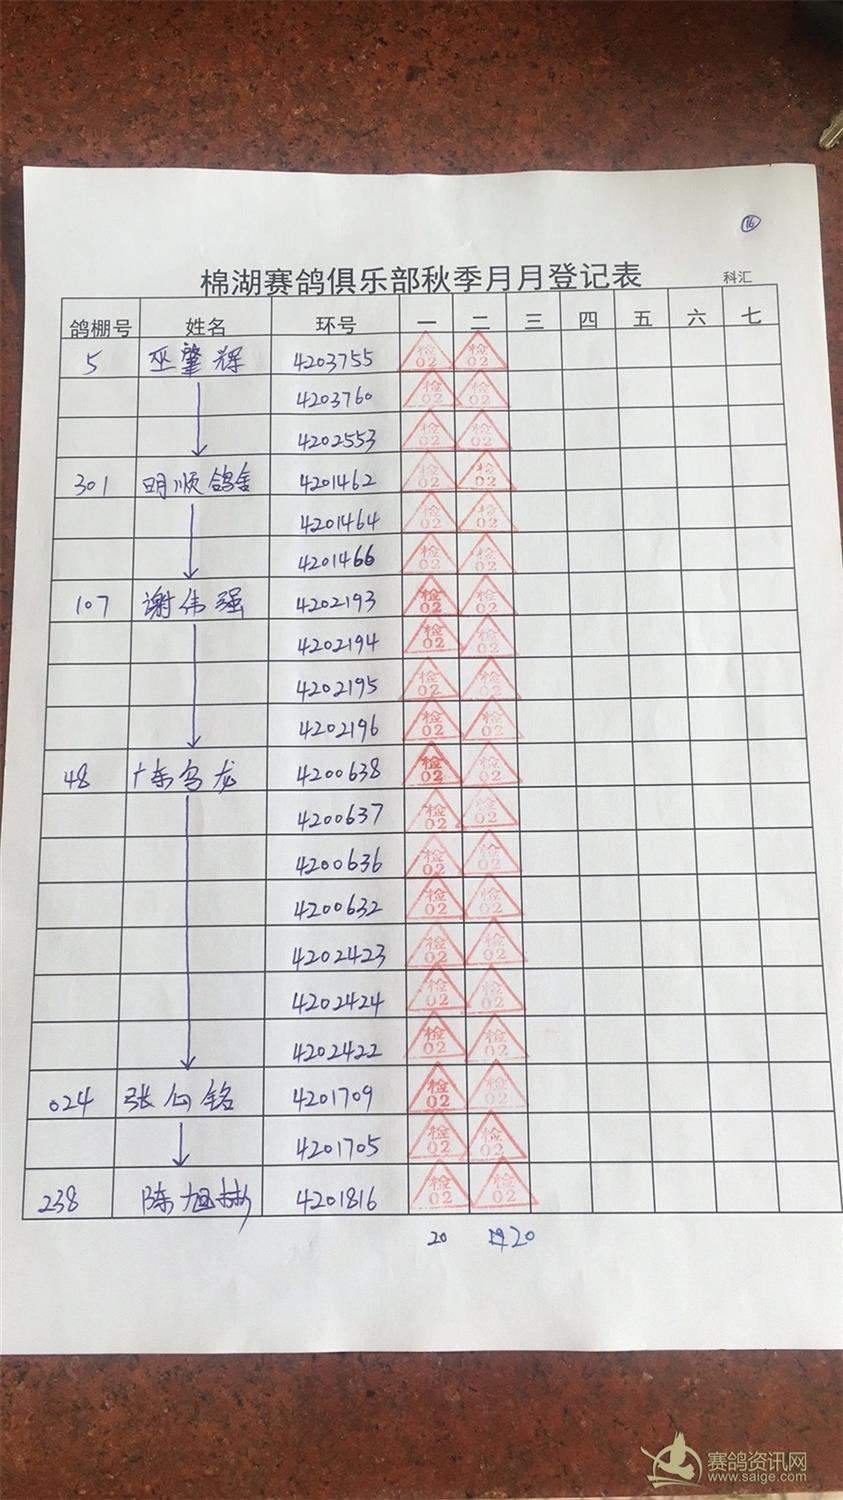 16
棉湖赛鸽俱乐部秋季月月登记表 科汇
鸽棚号 姓名 环号 一 二 三 四 五 六 七
5 巫肇辉 4203755 检02 检02
4203760 检02 检02
4202553 检02 检02
301 明顺鸽舍 4201462 检02 检02
4201464 检02 检02
4201466 检02 检02
107 谢伟强 4202193 检02 检02
4202194 检02 检02
4202195 检02 检02
4202196 检02 检02
48 广东乌龙 4200638 检02 检02
4200637 检02 检02
4200636 检02 检02
4200632 检02 检02
4202423 检02 检02
4202424 检02 检02
4202422 检02 检02
024 张心铭 4201709 检02 检02
4201705 检02 检02
238 陈旭彬 4201816 检02 检02
20 20
赛鸽资讯网
www.saige.com